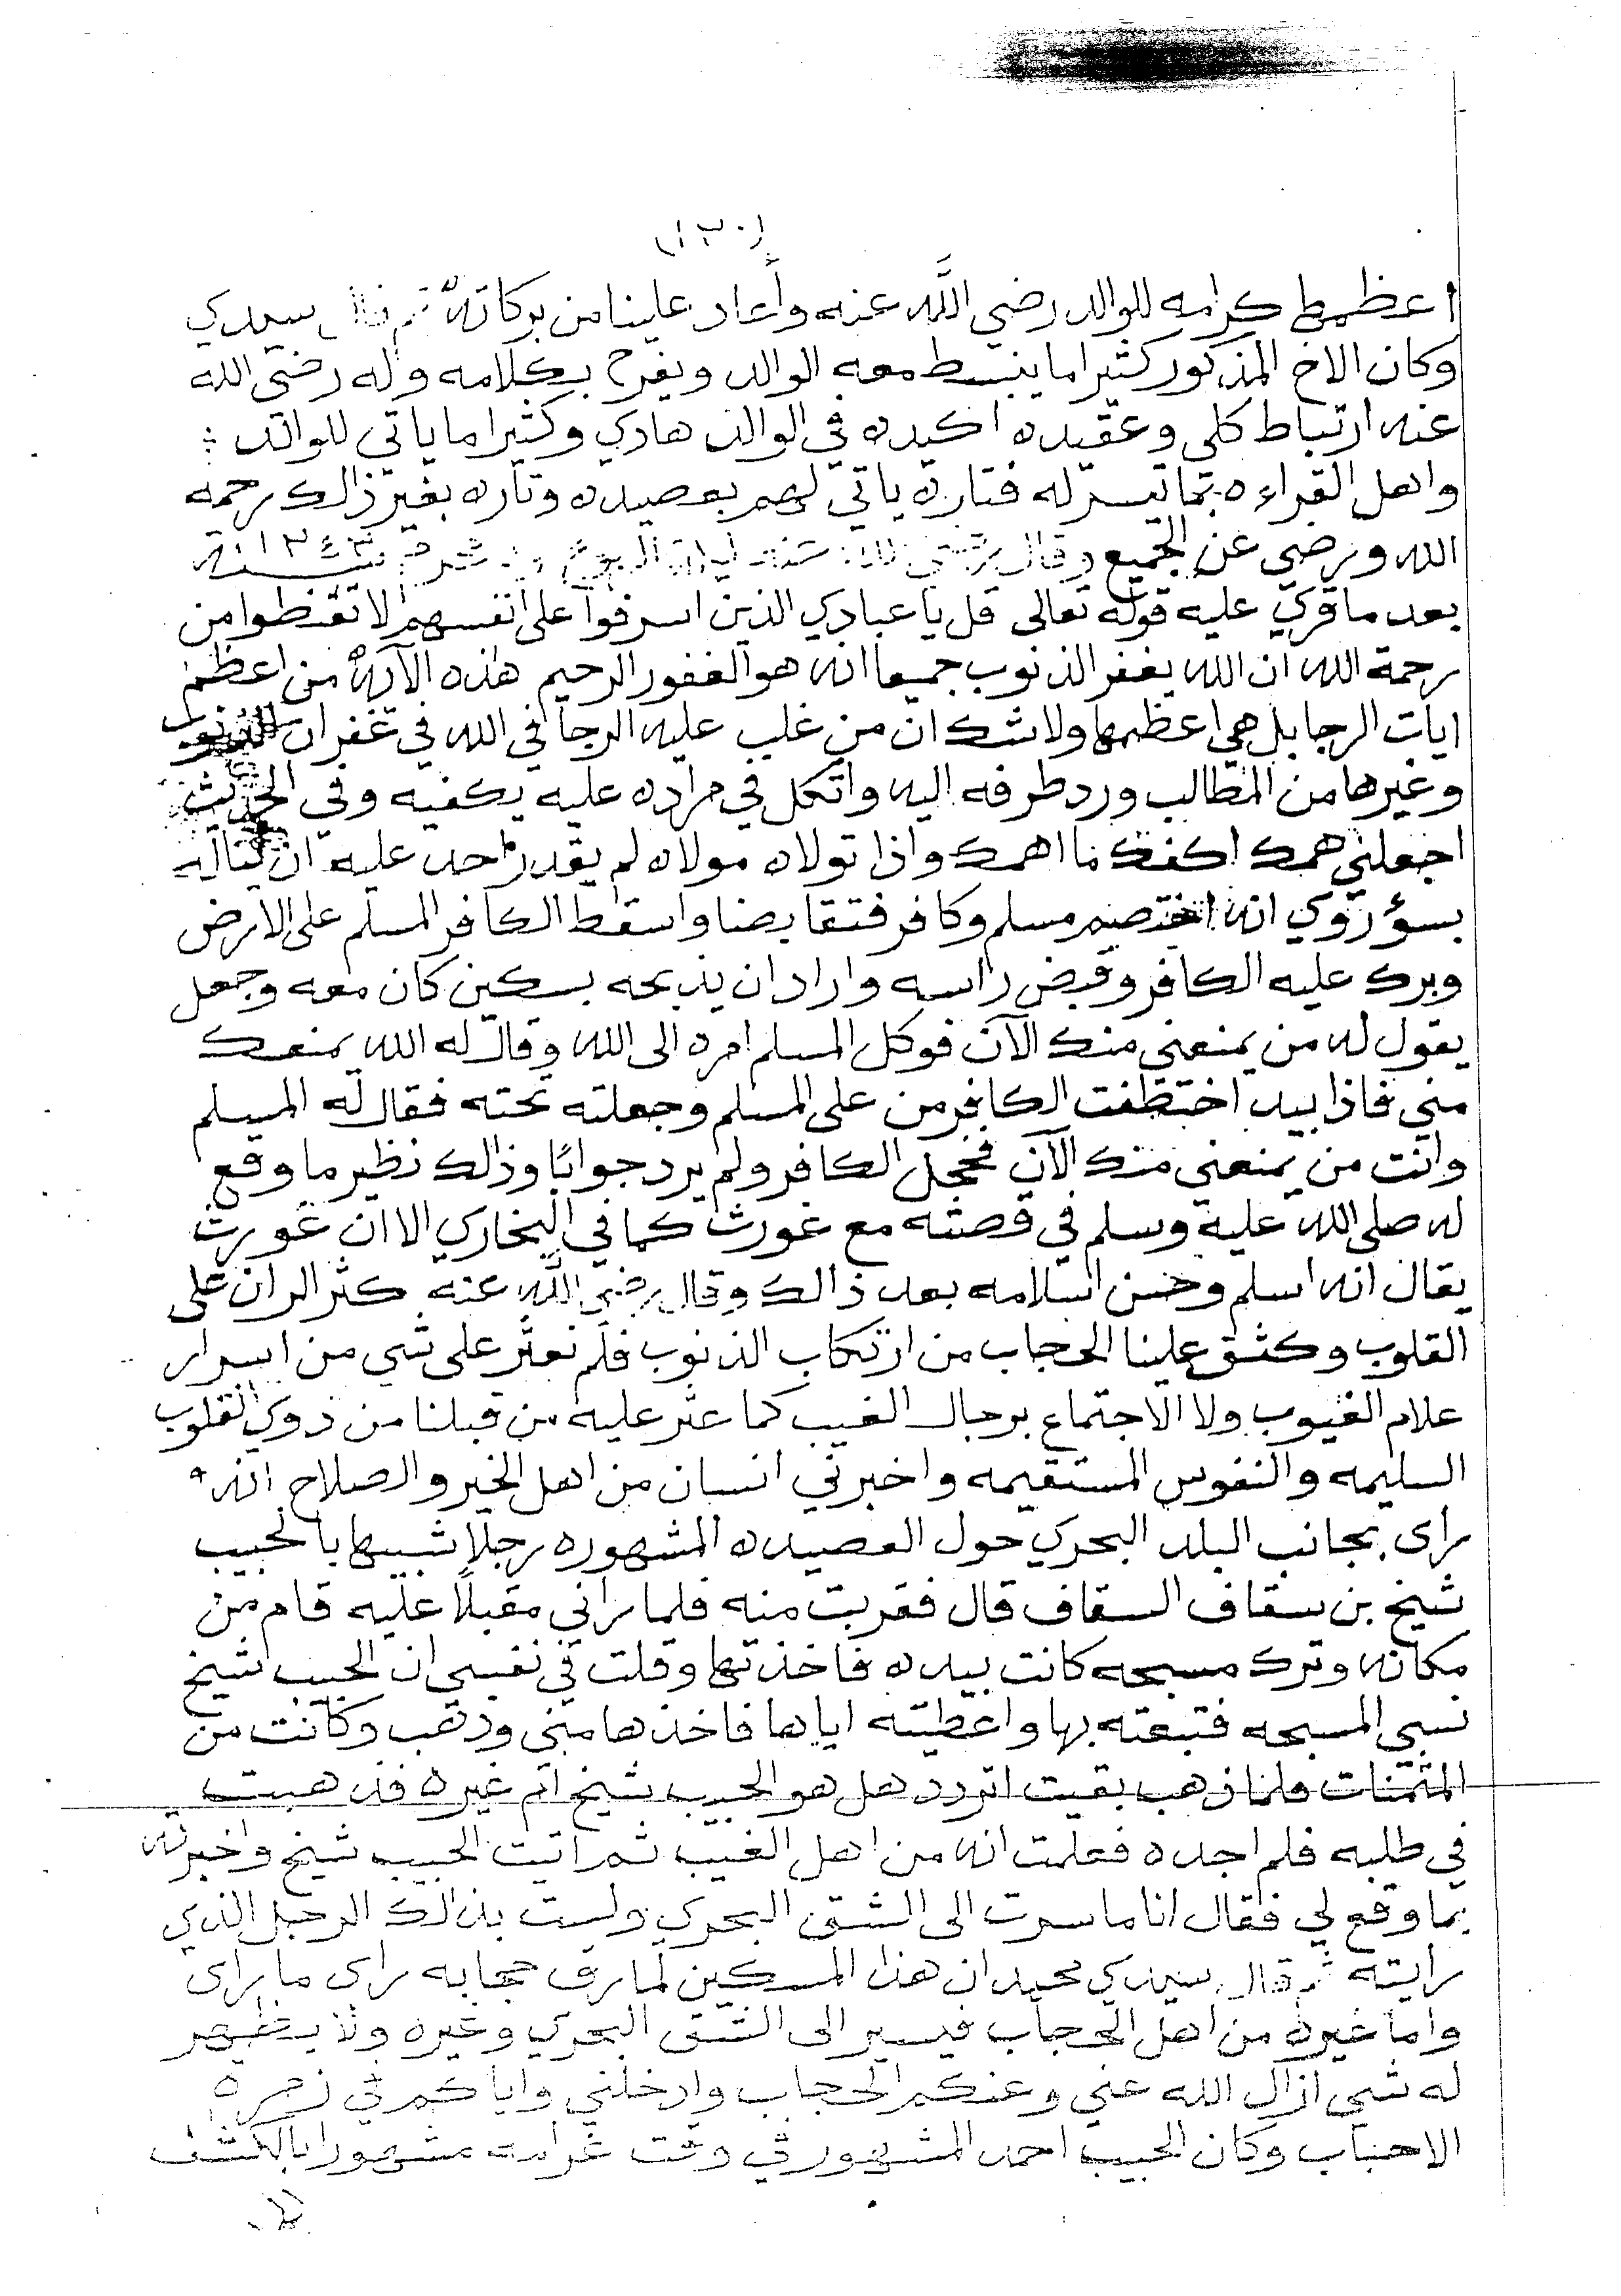 (١٣٠)
اعظمها كرامه للوالد رضي اللَّه عنه وأعاد علينا من بركاته ثم قال سيدي
وكان الاخ المذكور كثيرا ما ينبسط معه الوالد ويفرح بكلامه وله رضي الله
عنه ارتباط كلي وعقيده اكيده في الوالد هادي وكثيرا ما ياتي للوالد :
واهل القراءه بما تيسر له فتاره ياتي لهم بعصيده وتاره بغير ذالك رحمه
الله ورضي عن الجميع وقال رضي الله عنه ليلة الربوع ١٣٤٣ سنة
بعد ما قري عليه قوله تعالى قل يا عبادي الذين اسرفوا على انفسهم لا تقنطوا من
رحمة الله ان الله يغفر الذنوب جميعا انه هو الغفور الرحيم هاذه الآية من اعظم
ايات الرجا بل هي اعظمها ولا شك ان من غلب عليه الرجا في الله في غفران الذنوب
وغيرها من المطالب ورد طرفه اليه واتكل في مراده عليه يكفيه وفي الحديث
اجعلني همك اكفك ما اهمك واذا تولاه مولاه لم يقدر احد عليه ان يناله
بسؤ روي انه اختصم مسلم وكافر فتقابضا واسقط الكافر المسلم على الارض
وبرك عليه الكافر وقبض راسه واراد ان يذبحه بسكين كان معه وجعل
يقول له من يمنعني منك الآن فوكل المسلم امره الى الله وقال له الله يمنعك
مني فاذا بيد اختطفت الكافر من على المسلم وجعلته تحته فقال له المسلم
وانت من يمنعني منك الآن فخجل الكافر ولم يرد جوابًا وذالك نظير ما وقع
له صلى الله عليه وسلم في قصته مع غورث كما في البخاري الا ان غورث
يقال انه اسلم وحسن اسلامه بعد ذالك وقال رضي اللَّه عنه كثر الران على
القلوب وكثف علينا الحجاب من ارتكاب الذنوب فلم نعثر على شي من اسرار
علام الغيوب ولا الاجتماع برجال الغيب كما عثر عليه من قبلنا من ذوي القلوب
السليمه والنفوس المستقيمه واخبرني انسان من اهل الخير والصلاح انه
راى بجانب البلد البحري حول العصيده المشهوره رجلا شبيها بالحبيب
شيخ بن سقاف السقاف قال فقربت منه فلما راني مقبلاً عليه قام من
مكانه وترك مسبحه كانت بيده فاخذتها وقلت في نفسي ان الحبيب شيخ
نسي المسبحه فتبعته بها واعطيته اياها فاخذها مني وذهب وكانت من
المثمنات فلما ذهب بقيت اتردد هل هو الحبيب شيخ ام غيره فذهبت
في طلبه فلم اجده فعلمت انه من اهل الغيب ثم اتيت الحبيب شيخ واخبرته
بما وقع لي فقال انا ما سرت الى الشق البحري ولست بذالك الرجل الذي
رايته ثم قال سيدي محمد ان هذا المسكين لما رق حجابه راى ما راى
واما غيره من اهل الحجاب فيسير الى الشق البحري وغيره ولا يظهر
له شي ازال الله عني وعنكم الحجاب وادخلني واياكم في زمره
الاحباب وكان الحبيب احمد المشهور في وقت غرامه مشهورا بالكشف